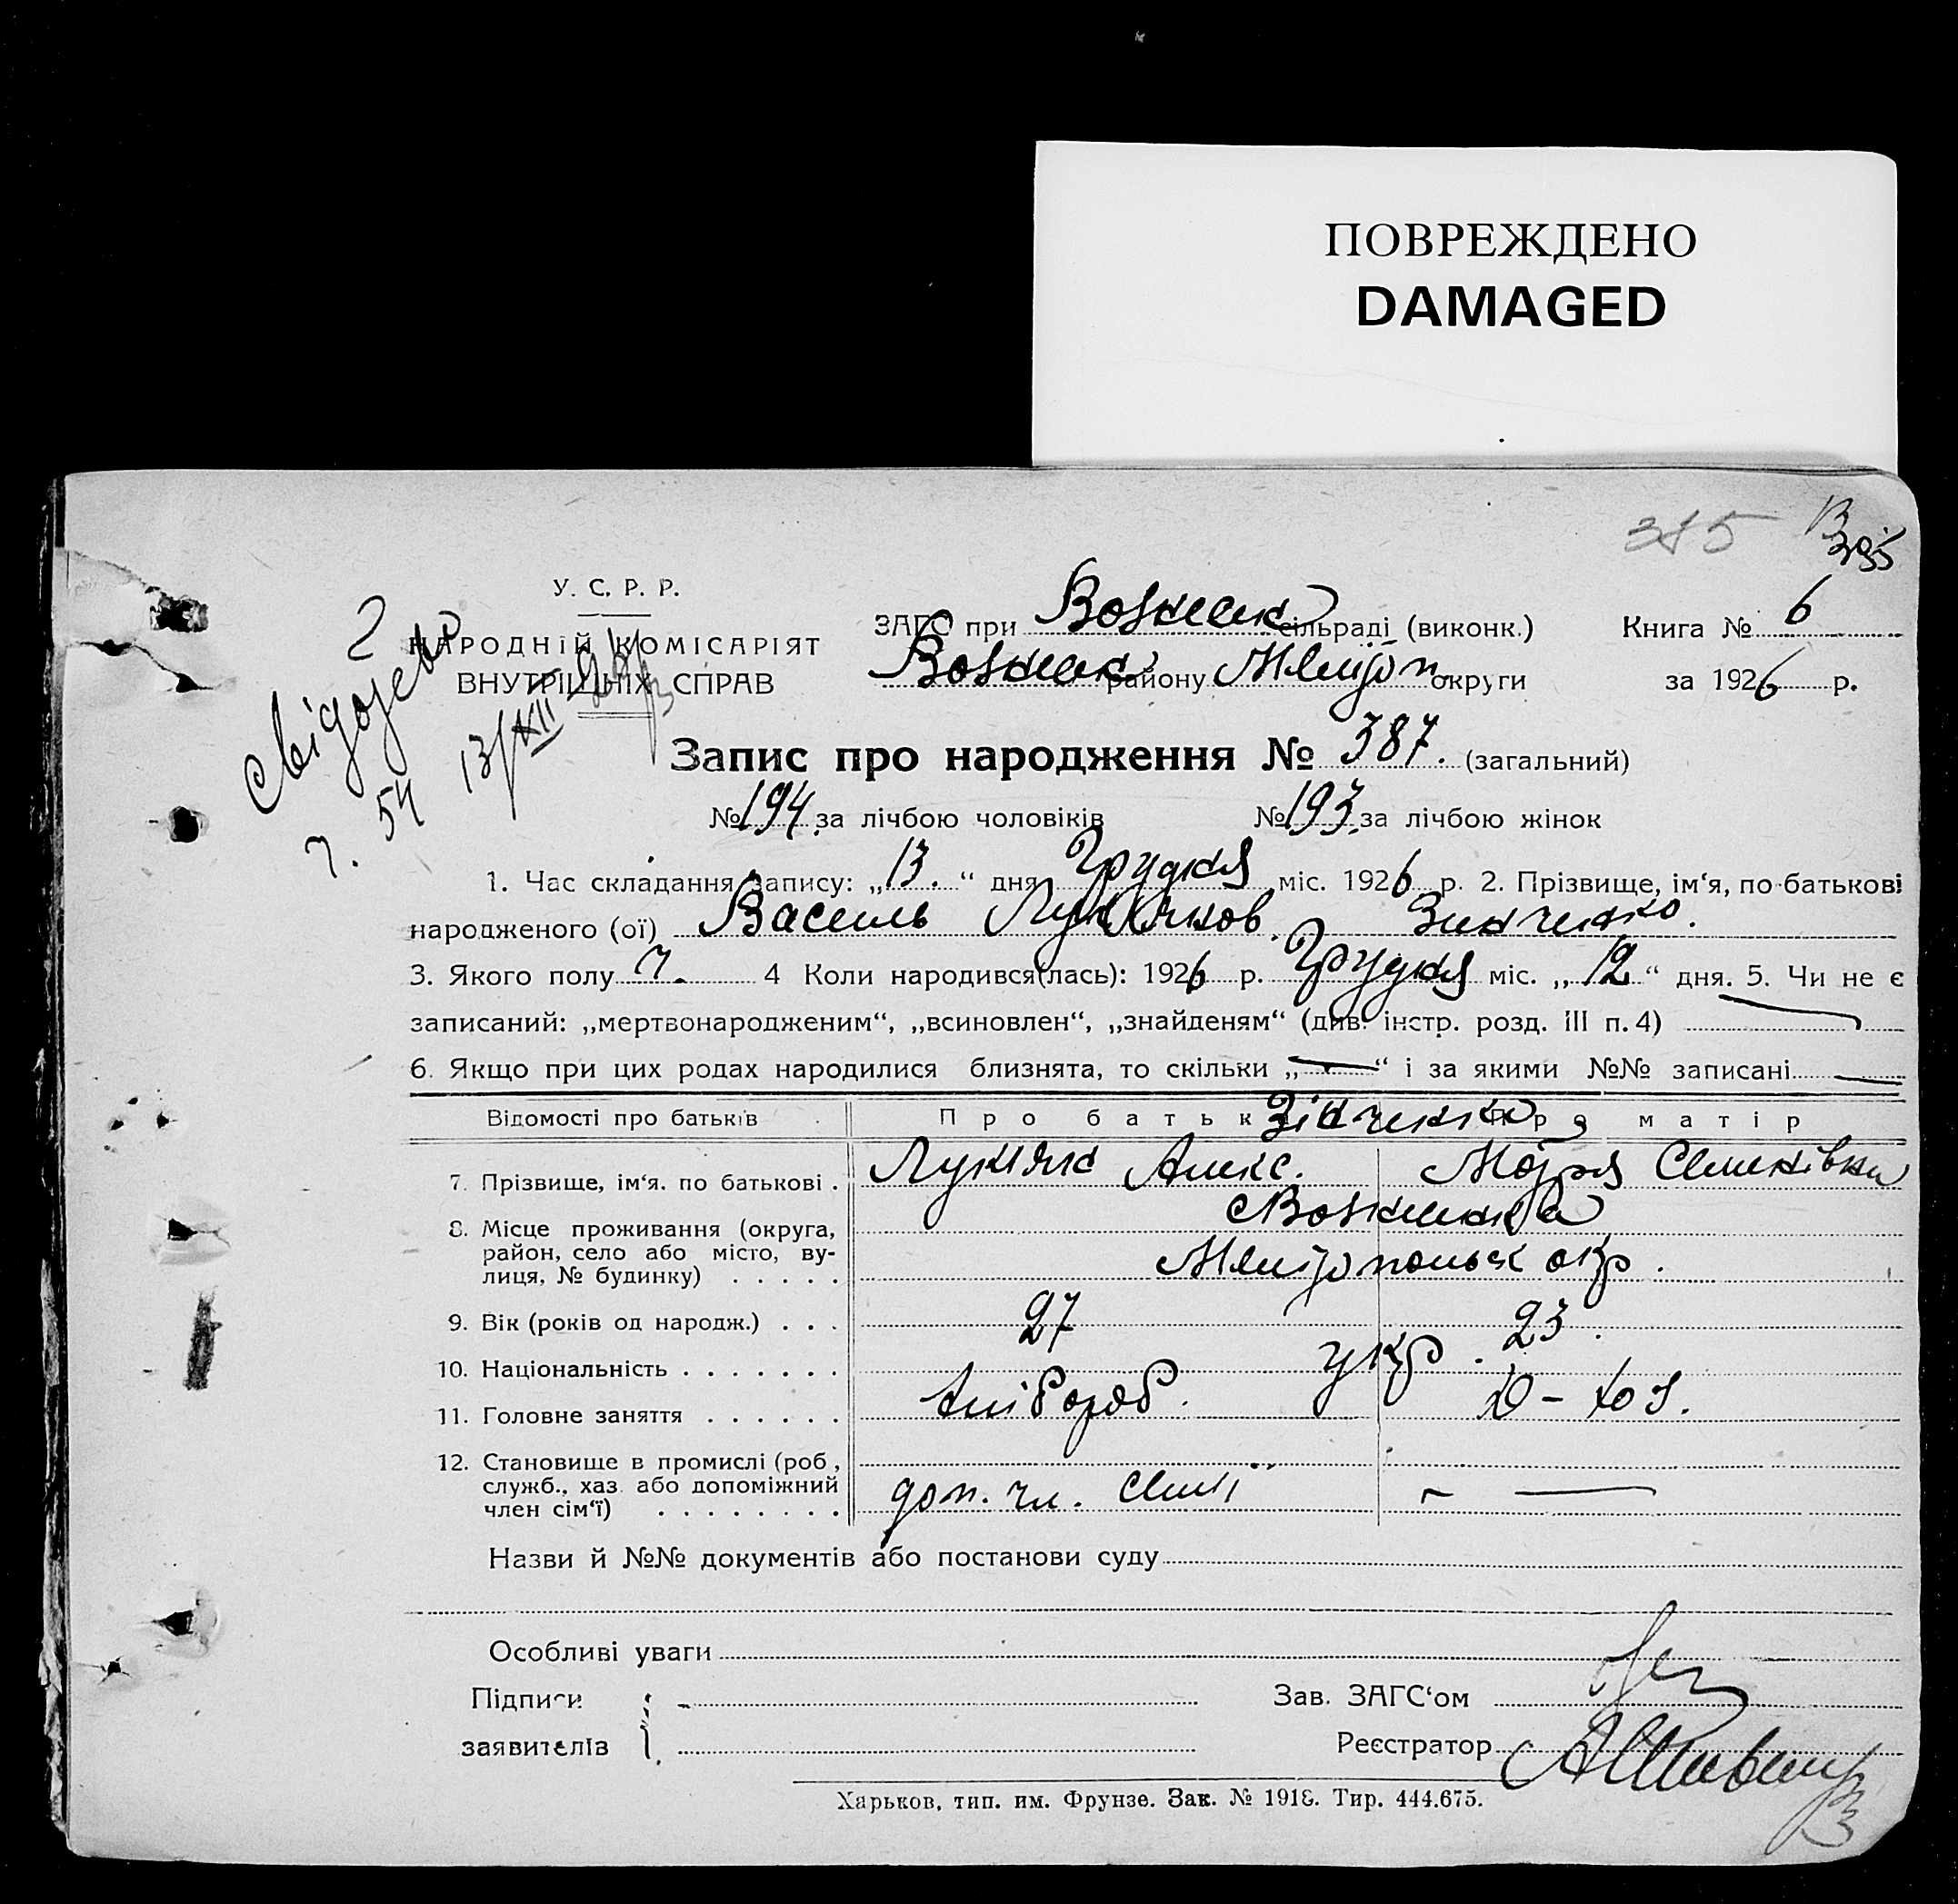 ПОВРЕЖДЕНО
DAMAGED
395
У. С. Р. Р.
НАРОДНІЙ КОМІСАРІЯТ
ВНУТРІШНІХ СПРАВ
2
13/XII
54
ЗАГС при Вознесен сільраді (виконк.) Книга № 6
Вознесен району Меліtоп округи за 1926 р.
Запис про народження № 387. (загальний)
№ 194 за лічбою чоловіків № 193 за лічбою жінок
1. Час складання запису: „13.“ дня Грудня міс. 1926 р. 2. Прізвище, ім‘я, по-батькові
народженого (ої) Василь Лукянов. Зинченко.
3. Якого полу ч. 4 Коли народився(лась): 1926 р. Грудня міс. „12“ дня. 5. Чи не є
записаний: „мертвонародженим“, „всиновлен“, „знайденям“ (див. інстр. розд. III п. 4) —
6. Якщо при цих родах народилися близнята, то скільки „—“ і за якими №№ записані —
Відомості про батьків Про батьк Зінченко Про матір
7. Прізвище, ім‘я. по батькові . Лукіян Алекс. Марія Семенівна
8. Місце проживання (округа, район, село або місто, вулиця, № будинку) . . . . . с Вознесенка
Мелітопольск окр.
9. Вік (років од народж.) . . . 27 23.
10. Національність . . . . . . . укр.
11. Головне заняття . . . . . . хлібороб. д-хоз.
12. Становище в промислі (роб, служб., хаз. або допоміжний член сім‘ї) . . . . . . . . доп. чл. семії — —
Назви й №№ документів або постанови суду
Особливі уваги
Підписи заявителів
Зав. ЗАГС‘ом
Реєстратор
Харьков, тип. им. Фрунзе. Зак. № 1918. Тир. 444.675.